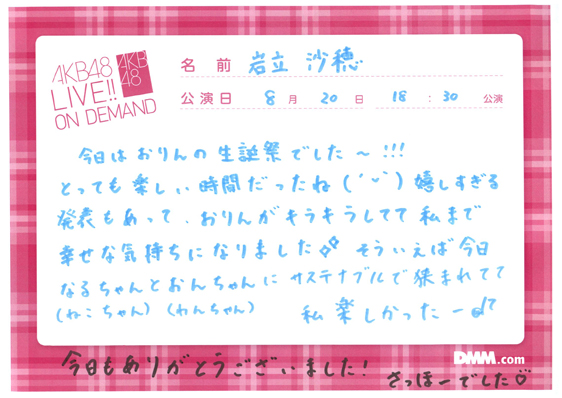 AKB48
LIVE!!
ON DEMAND
AKB
48
名前 岩立 沙穂
公演日 8月 20日 18:30 公演
今日はおりんの生誕祭でした〜!!!
とっても楽しい時間だったね(´ᵕ`)嬉しすぎる
発表もあって、おりんがキラキラしてて私まで
幸せな気持ちになりました そういえば今日
なるちゃんとおんちゃんに サステナブルで挟まれてて
(ねこちゃん)(わんちゃん) 私楽しかったー♪
今日もありがとうございました!
DMM.com
さっほーでした♡